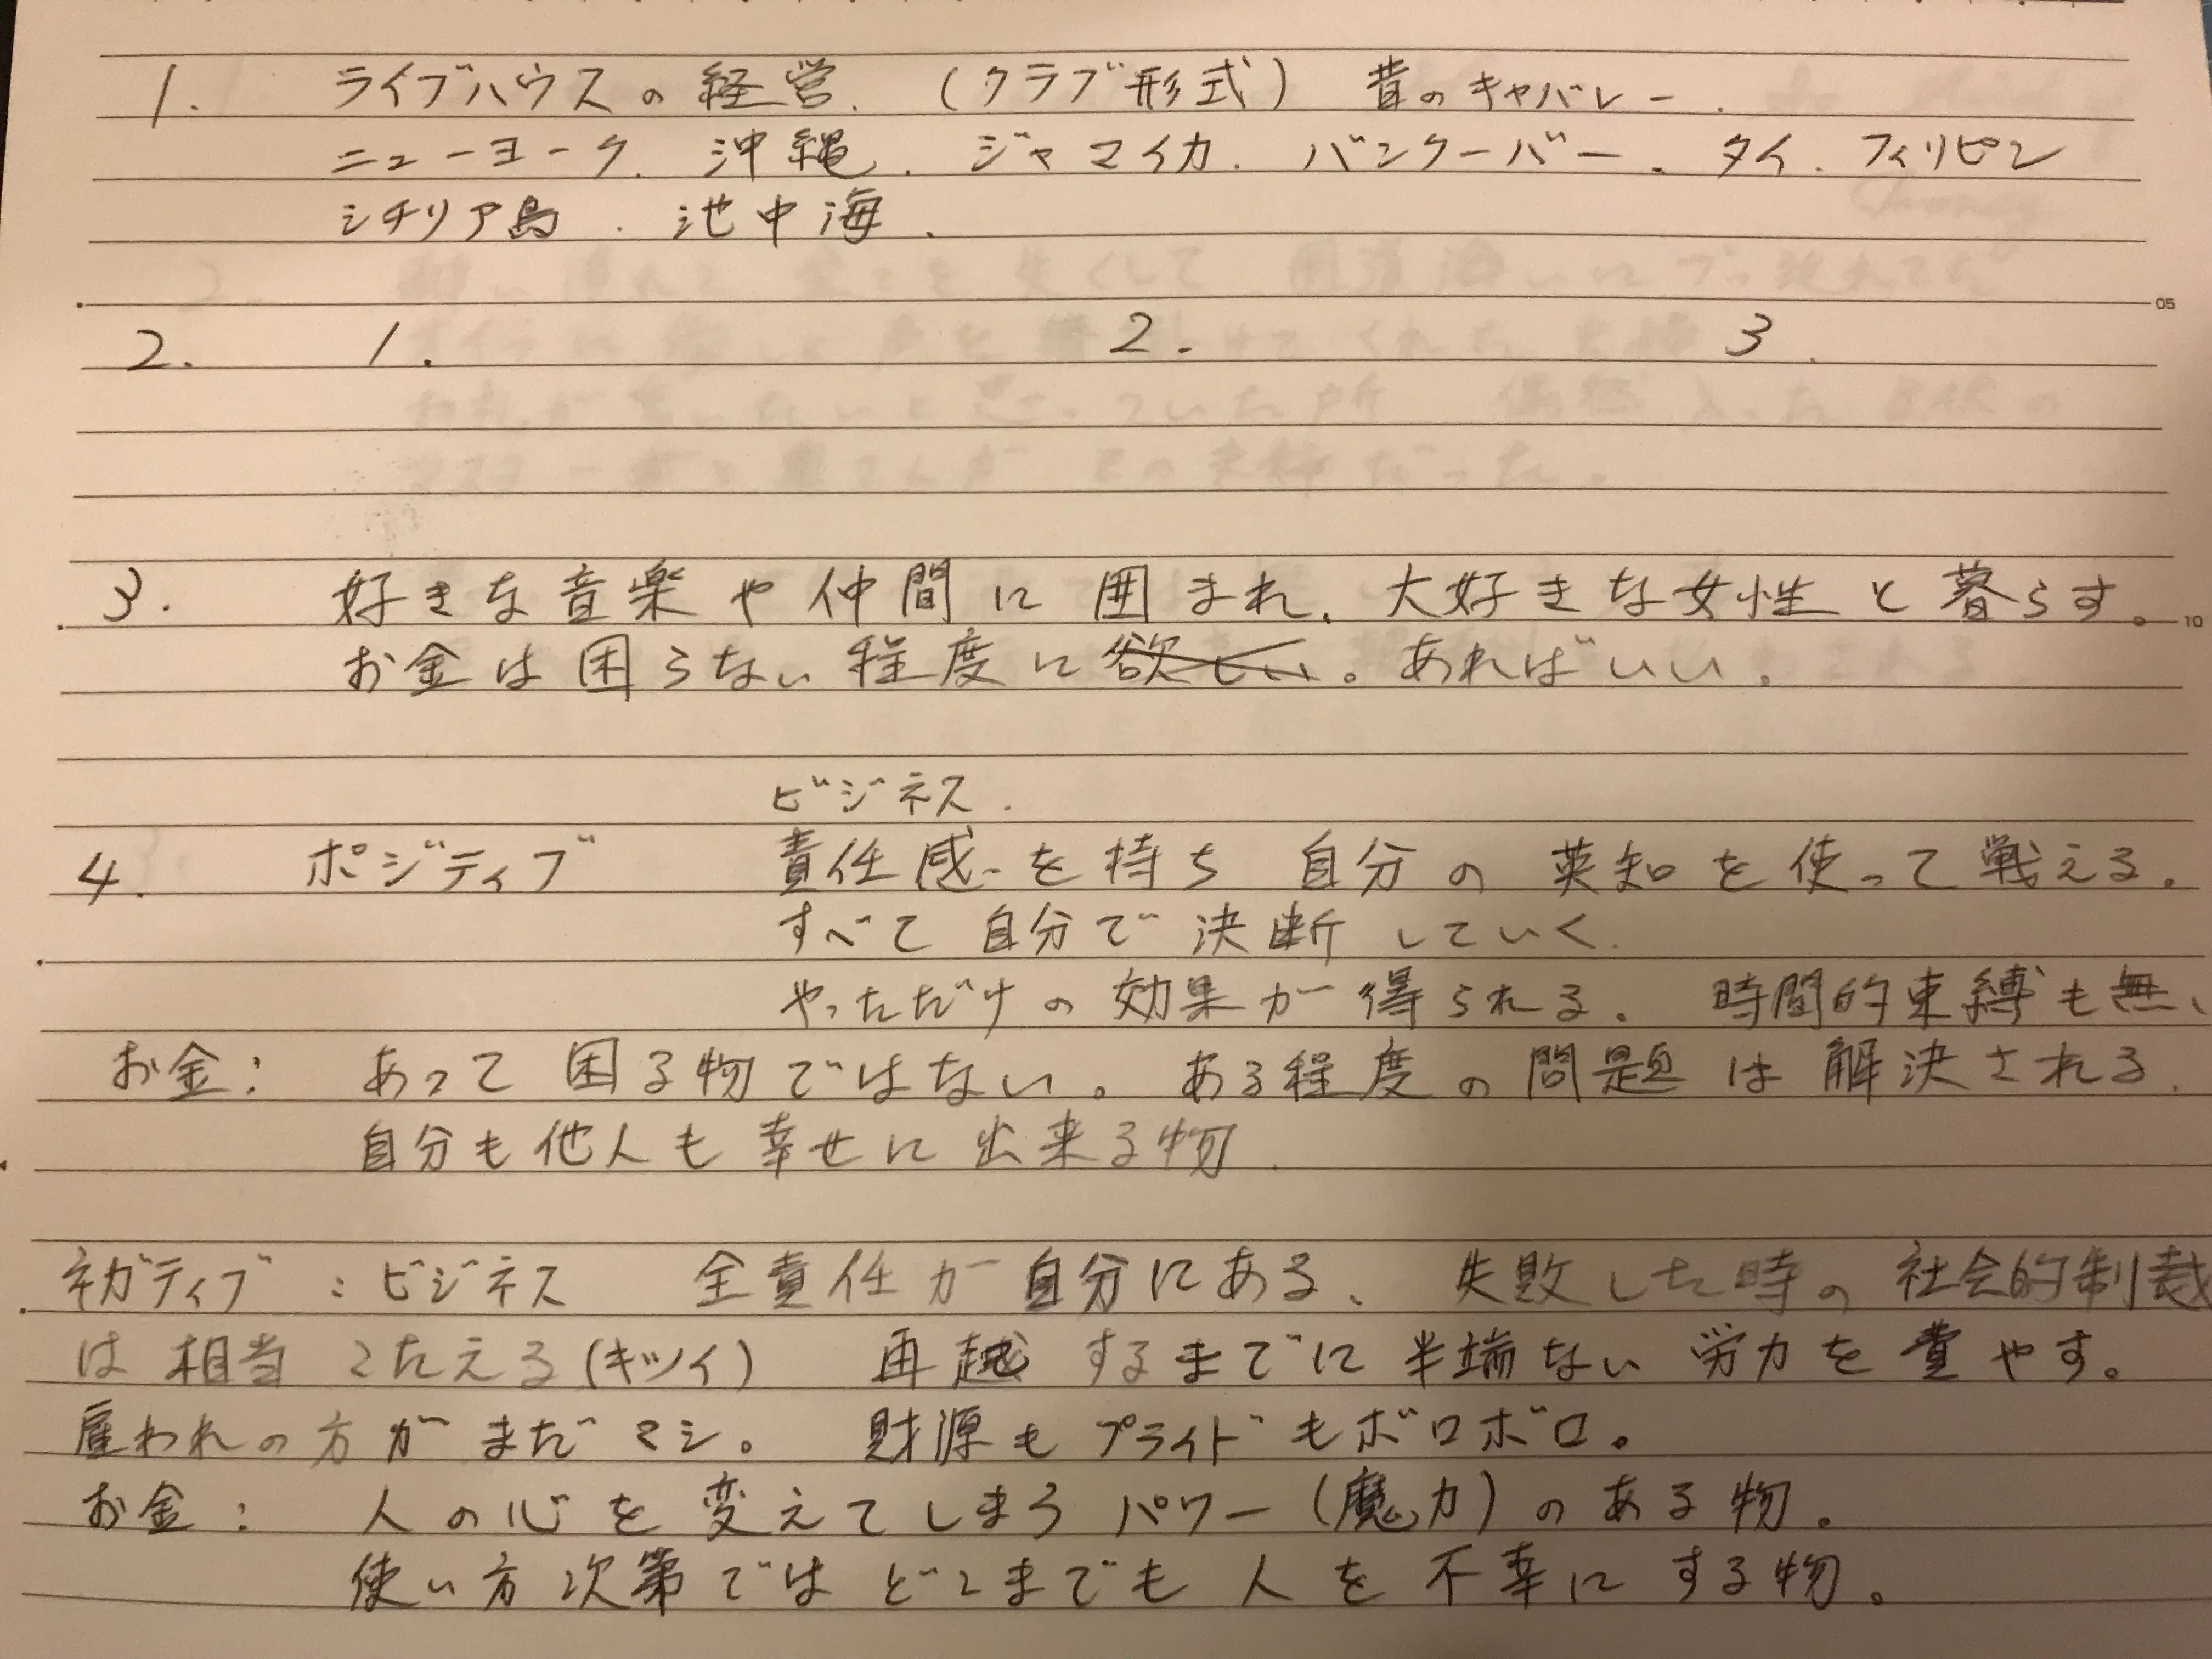 1. ライブハウスの経営. (クラブ形式) 昔のキャバレー.
ニューヨーク. 沖縄. ジャマイカ. バンクーバー. タイ. フィリピン
シチリア島. 池中海.
05
2. 1. 2. 3.
3. 好きな音楽や仲間に囲まれ、大好きな女性と暮らす。 10
お金は困らない程度に欲しい。あればいい。
ビジネス.
4. ポジティブ 責任感を持ち 自分の英知を使って戦える。
すべて自分で決断していく.
やっただけの効果が得られる. 時間的束縛も無、
お金: あって困る物ではない。ある程度の問題は解決される.
自分も他人も幸せに出来る物.
ネガティブ : ビジネス 全責任が自分にある、失敗した時の社会的制裁
は相当こたえる(キツイ) 再起するまでに半端ない労力を費やす。
雇われの方がまだマシ。 財源もプライドもボロボロ。
お金: 人の心を変えてしまうパワー(魔力)のある物.
使い方次第ではどこまでも人を不幸にする物。